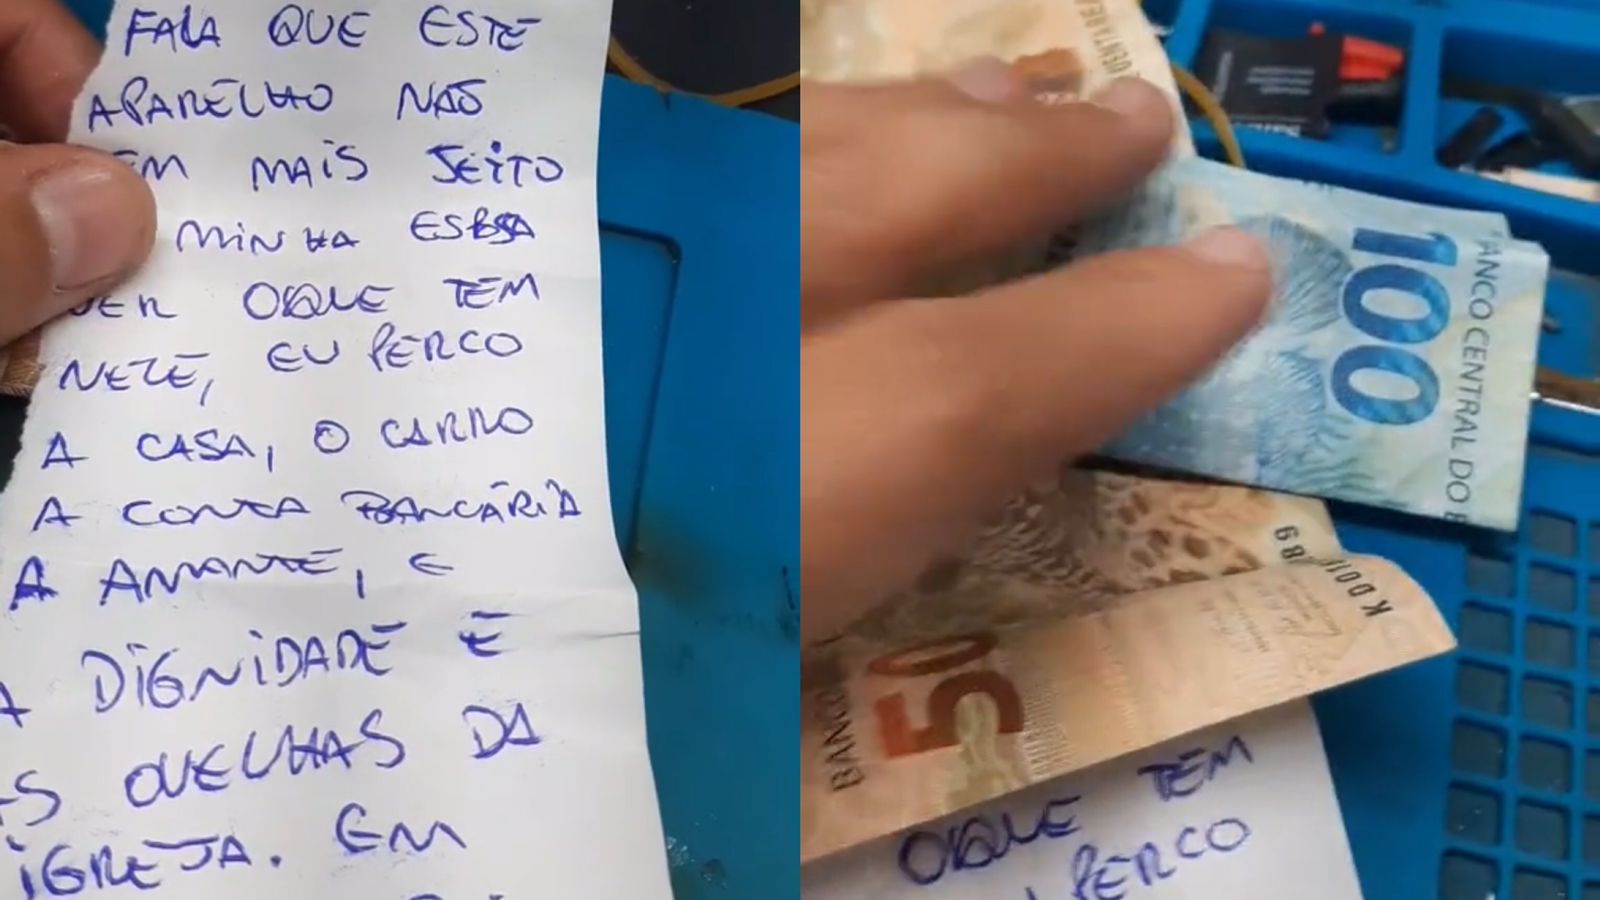 FALA QUE ESTE
APARELHO NÃO
EM MAIS JEITO
MINHA ESPSA
VER OIQUE TEM
NELE, EU PERCO
A CASA, O CARRO
A CONTA BANCÁRIA
A AMANTE, E
A DIGNIDADE E
AS OVELHAS DA
IGREJA. EM
100
BANCO CENTRAL DO B
50
BANCO
K001
OIQUE TEM
PERCO